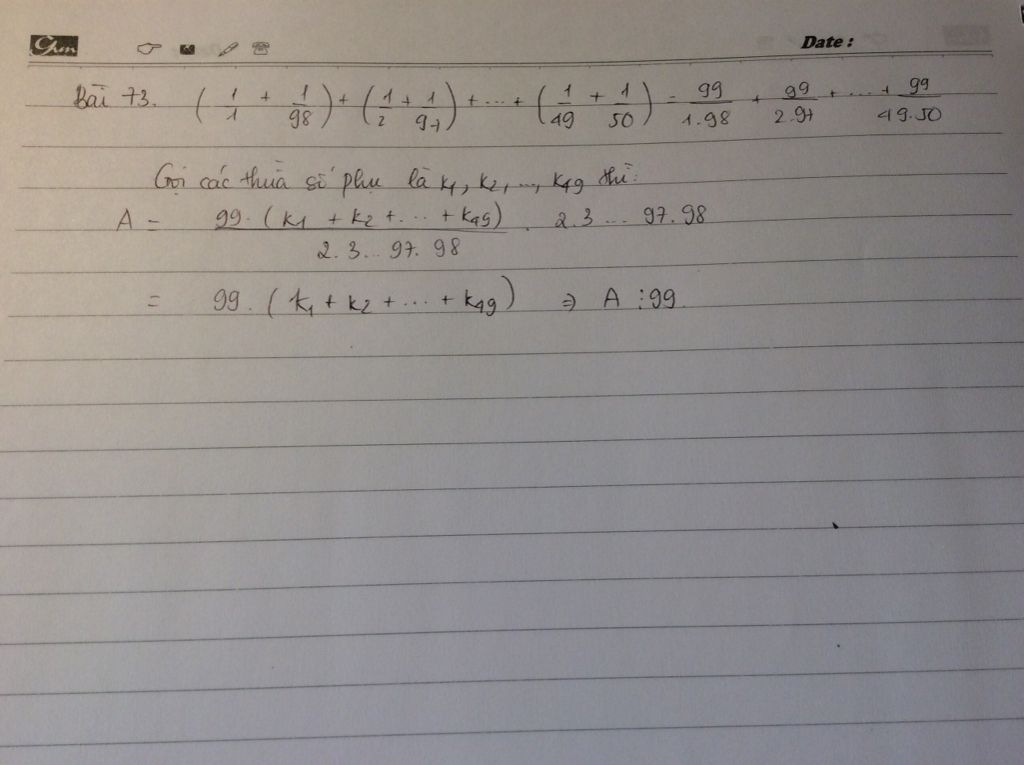 Chm Date :
Bài 73. (1/1 + 1/98) + (1/2 + 1/97) + ... + (1/49 + 1/50) = 99/1.98 + 99/2.97 + ... + 99/49.50
Gọi các thừa số phụ là k₁, k₂, ..., k₄₉ thì:
A = 99.(k₁ + k₂ + ... + k₄₉)/2.3...97.98 . 2.3...97.98
= 99.(k₁ + k₂ + ... + k₄₉) ⇒ A ⋮ 99